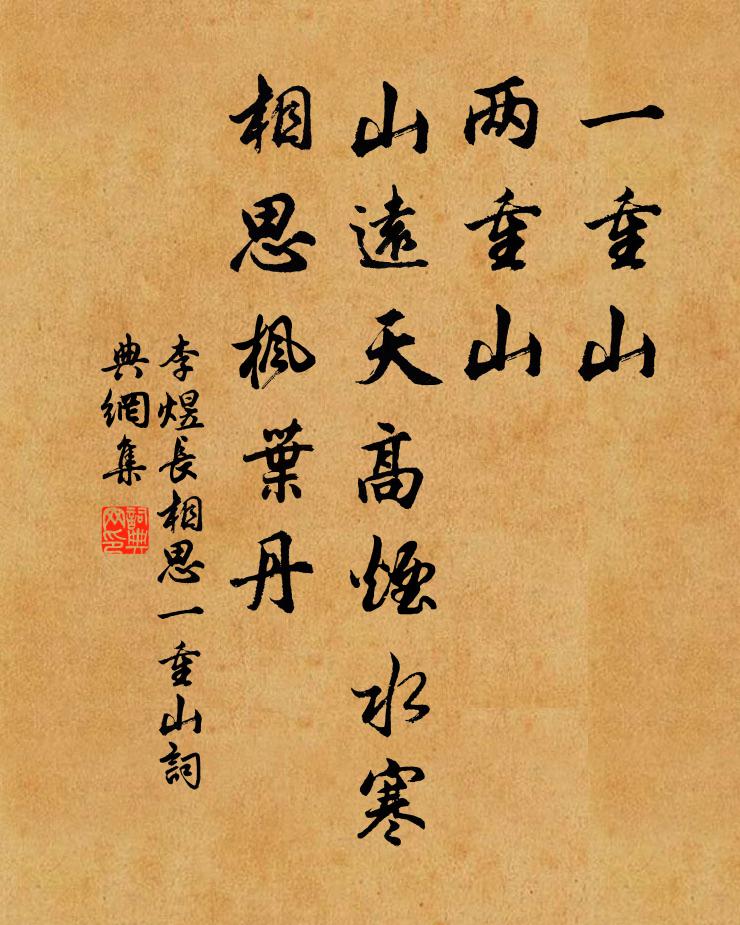 一重山
两重山
山遠天高煙水寒
相思楓葉丹
李煜長相思一重山詞
典網集
詞典網印